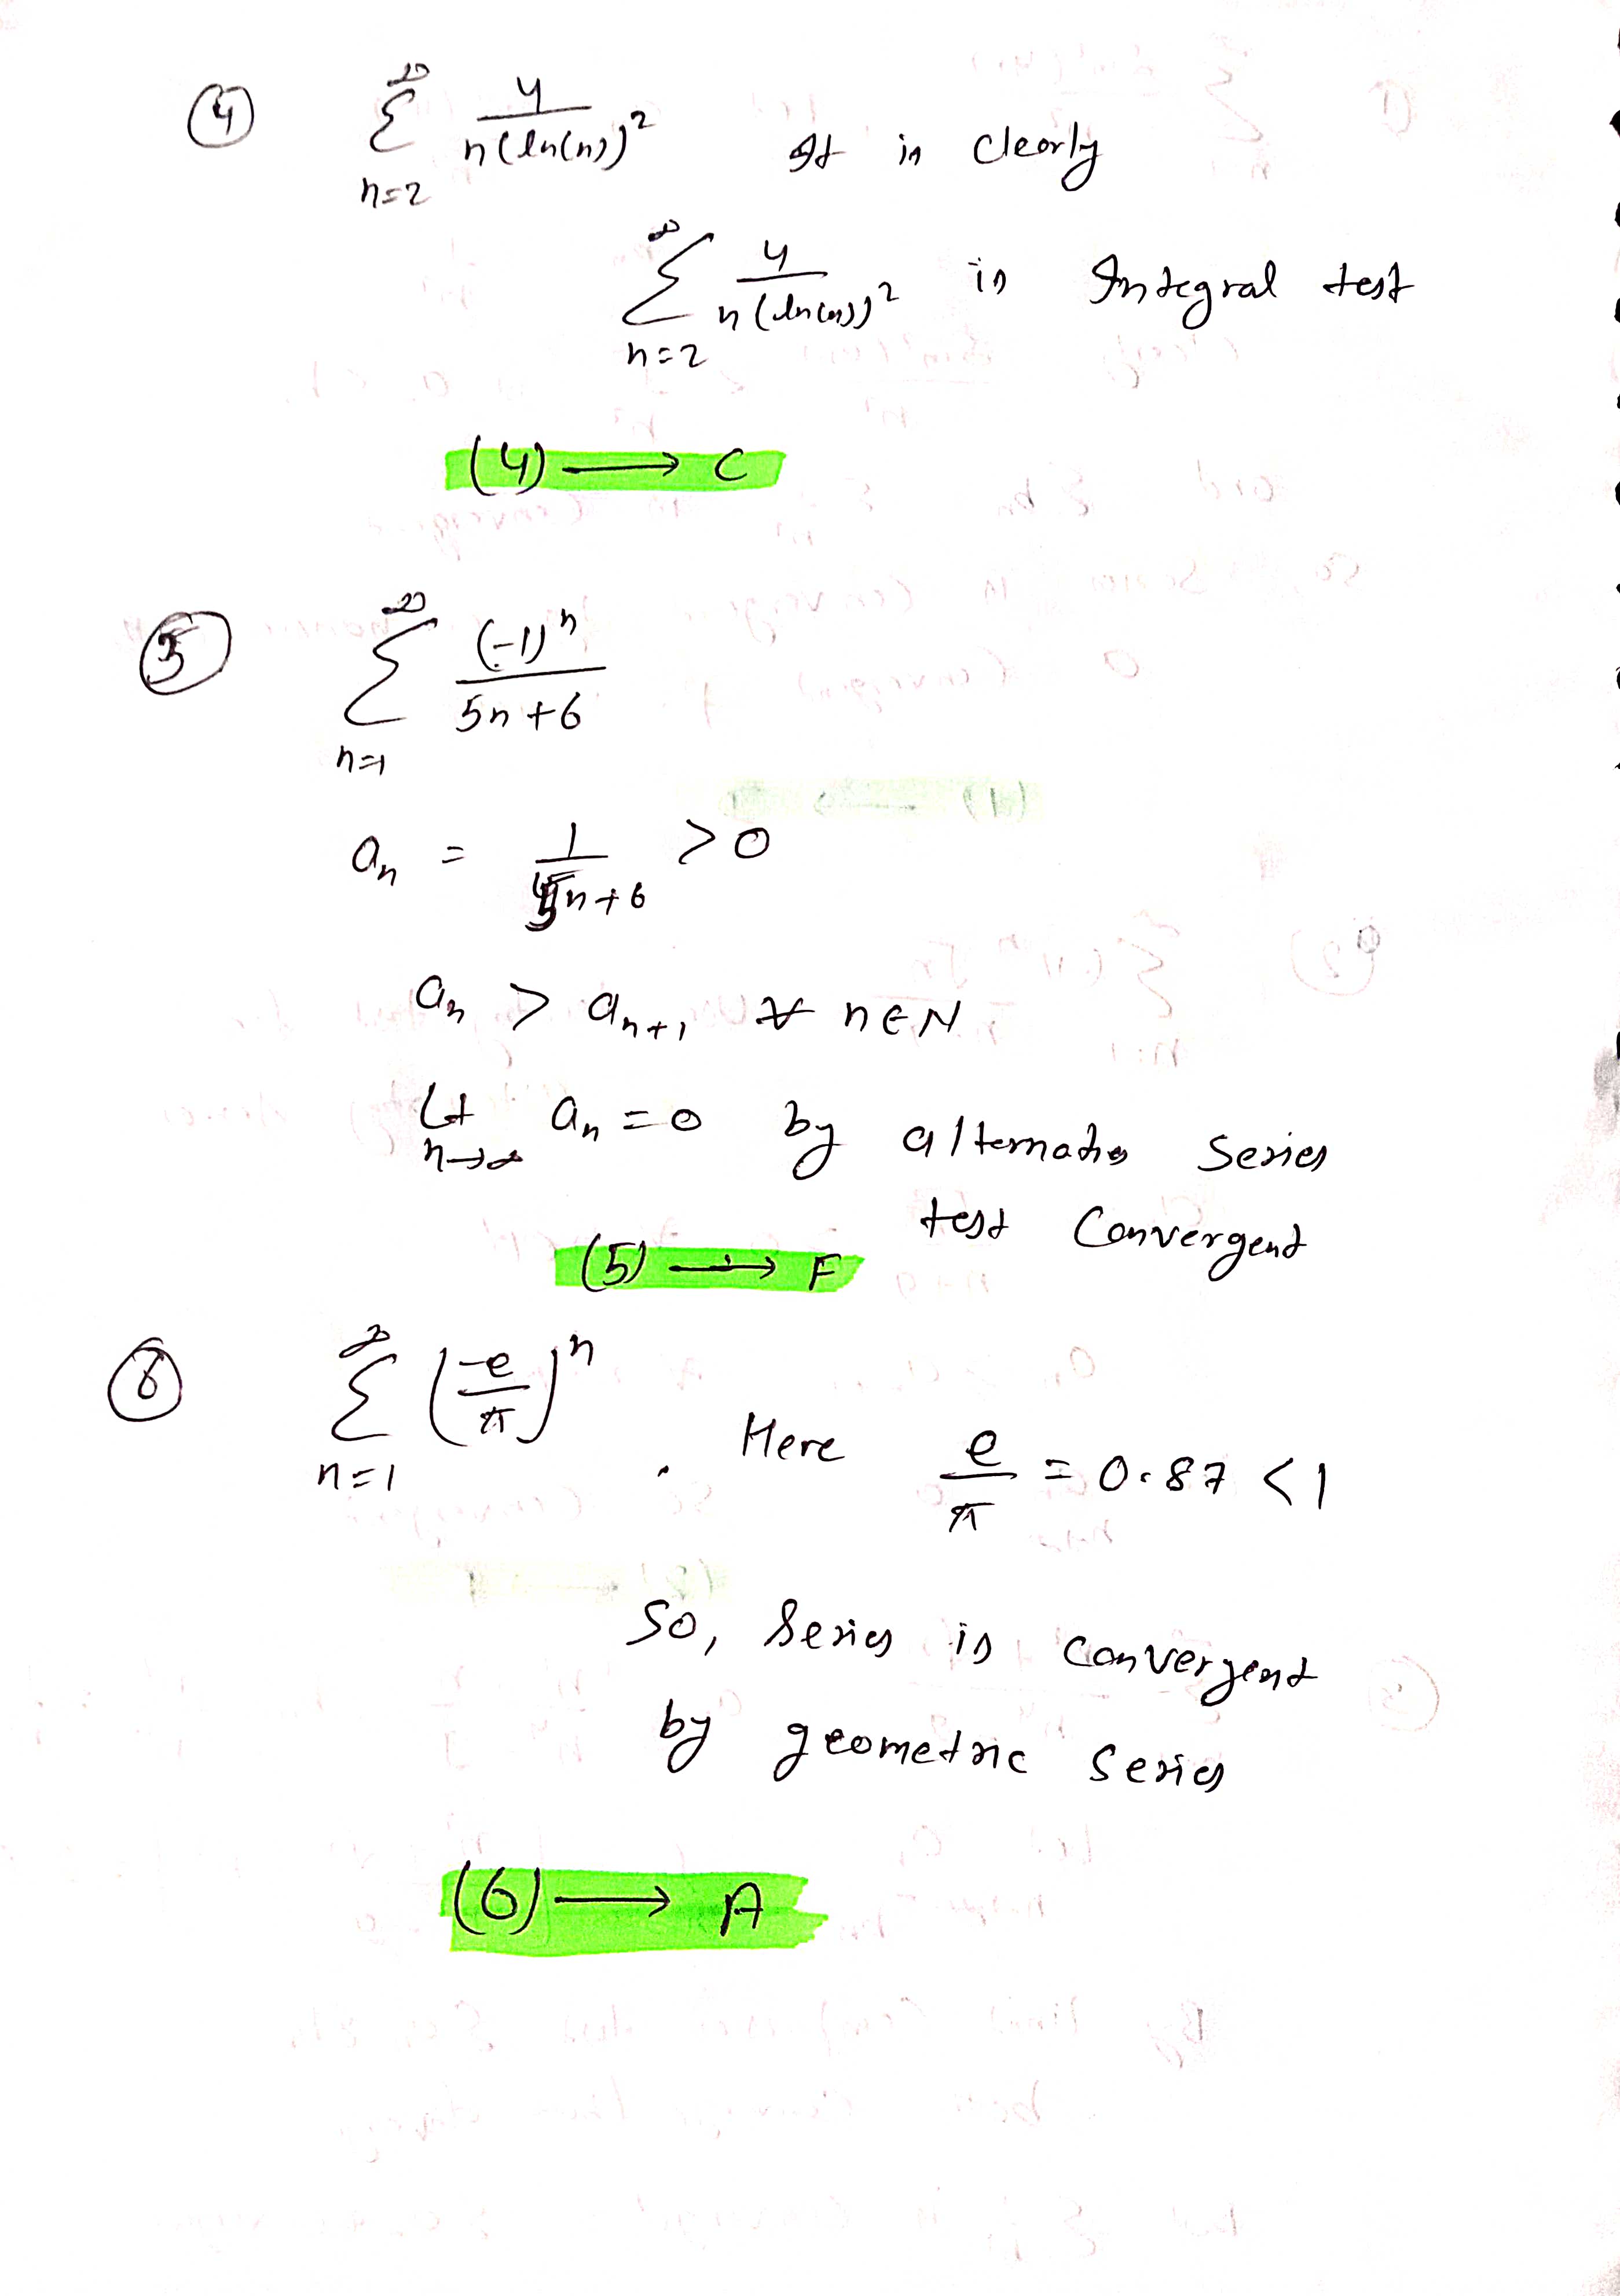 (4) ∞ Σ n=2 4/(n(ln(n))² It is clearly
∞ Σ n=2 4/(n(ln(n))² is Integral test
(4) → C
(5) ∞ Σ n=1 (-1)ⁿ/(5n+6)
aₙ = 1/(5n+6) > 0
aₙ > aₙ₊₁ ∀ n∈N
Lt n→∞ aₙ = 0 by alternating series
test Convergent
(5) → F
(6) ∞ Σ n=1 (-e/π)ⁿ . Here e/π = 0.87 < 1
So, Series is convergent
by geometric Series
(6) → A